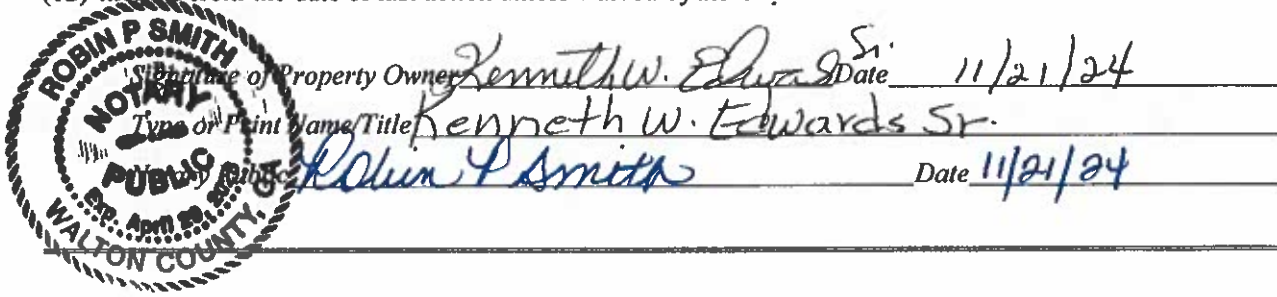 ROBIN P SMITH
NOTARY
PUBLIC
Exp. April
WALTON COUNTY, GA
Signature of Property Owner Kenneth W. Edwards Sr. Date 11/21/24
Type or Print Name/Title Kenneth W. Edwards Sr.
Notary Public Robin P Smith Date 11/21/24